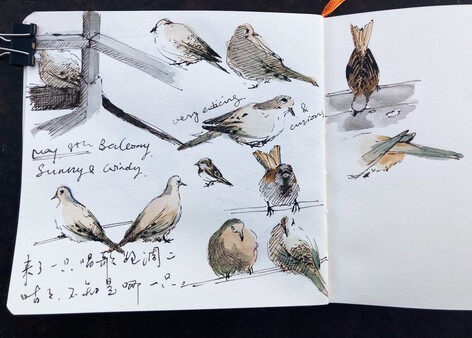 very enticing
& curious
May 8th Balcony.
Sunny & windy.
来了一只唱歌跑调
不知是哪一只